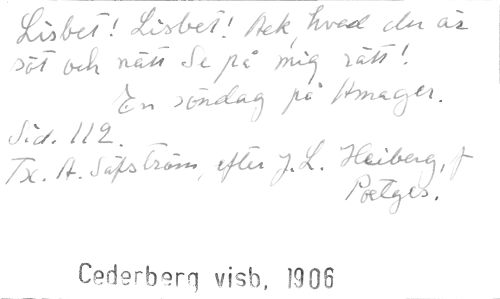 Lisbet! Lisbet! Ack, hvad du är
söt och nätt Se på mig rätt!
En söndag på Amager.
Sid. 112.
Tx. A. Säfström, efter J. L. Heiberg, f
Poetges.
Cederberg visb, 1906